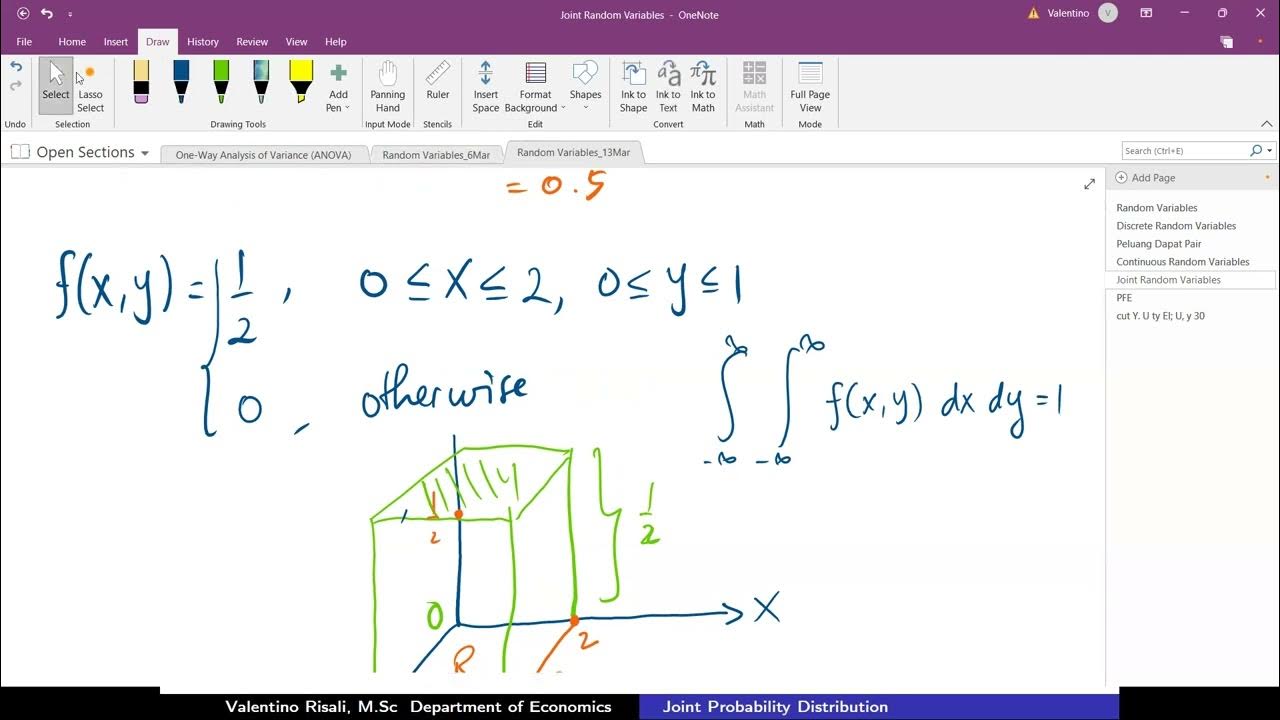 Joint Random Variables - OneNote
Valentino V
File Home Insert Draw History Review View Help
Select
Lasso Select
Add Pen
Panning Hand
Ruler
Insert Space
Format Background
Shapes
Ink to Shape
Ink to Text
Ink to Math
Math Assistant
Full Page View
Undo Selection Drawing Tools Input Mode Stencils Edit Convert Math Mode
Open Sections One-Way Analysis of Variance (ANOVA) Random Variables_6Mar Random Variables_13Mar Search (Ctrl+E)
Add Page
Random Variables
Discrete Random Variables
Peluang Dapat Pair
Continuous Random Variables
Joint Random Variables
PFE
cut Y. U ty El; U, y 30
= 0.5
f(x,y) = { 1/2 , 0 ≤ x ≤ 2, 0 ≤ y ≤ 1
0 , otherwise
∫_{-∞}^{∞} ∫_{-∞}^{∞} f(x,y) dx dy = 1
1/2
1/2
0
X
2
R
Valentino Risali, M.Sc Department of Economics Joint Probability Distribution